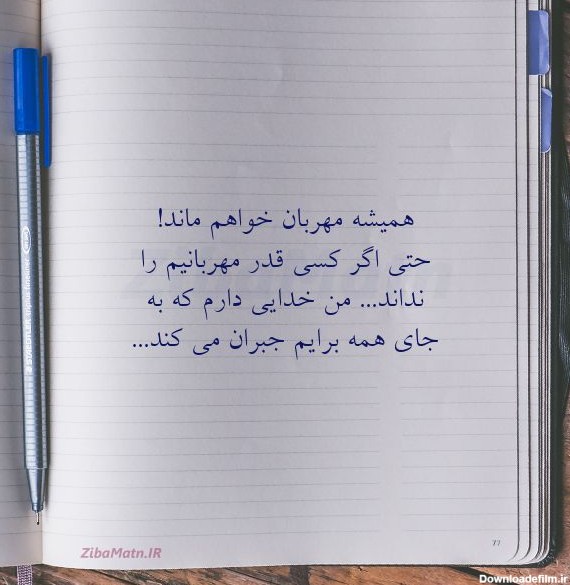 همیشه مهربان خواهم ماند!
حتی اگر کسی قدر مهربانیم را
نداند... من خدایی دارم که به
جای همه برایم جبران می کند...
77
ZibaMatn.IR
Downloadefilm.ir